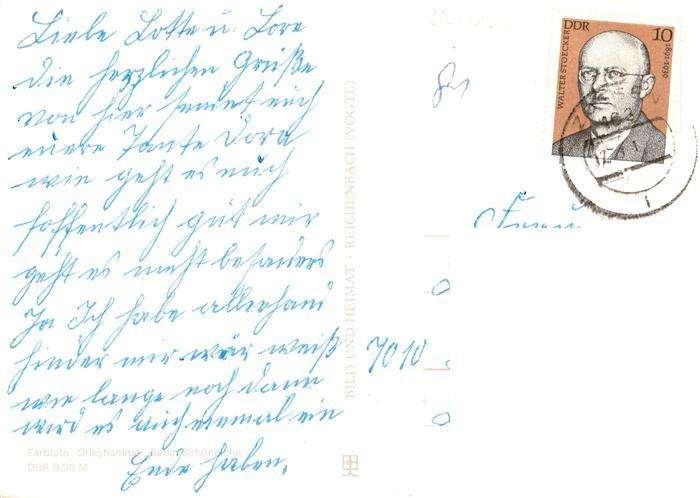 Liebe Lotte u. Lore
die herzlichen Grüße
von hier sendet euch
euere Tante Dora
wie geht es euch
hoffentlich gut mir
geht es nicht besonders
Ja Ich habe allerhand
hinder mir wär weiß
wie lange noch dann
wird es auch einmal ein
Ende haben.
Farbfoto: Grieshammer, Berlin-Schöneiche
DDR 0,20 M
BILD UND HEIMAT · REICHENBACH (VOGTL)
WALTER STOECKER
DDR
10
1891-1939
Frau
7010